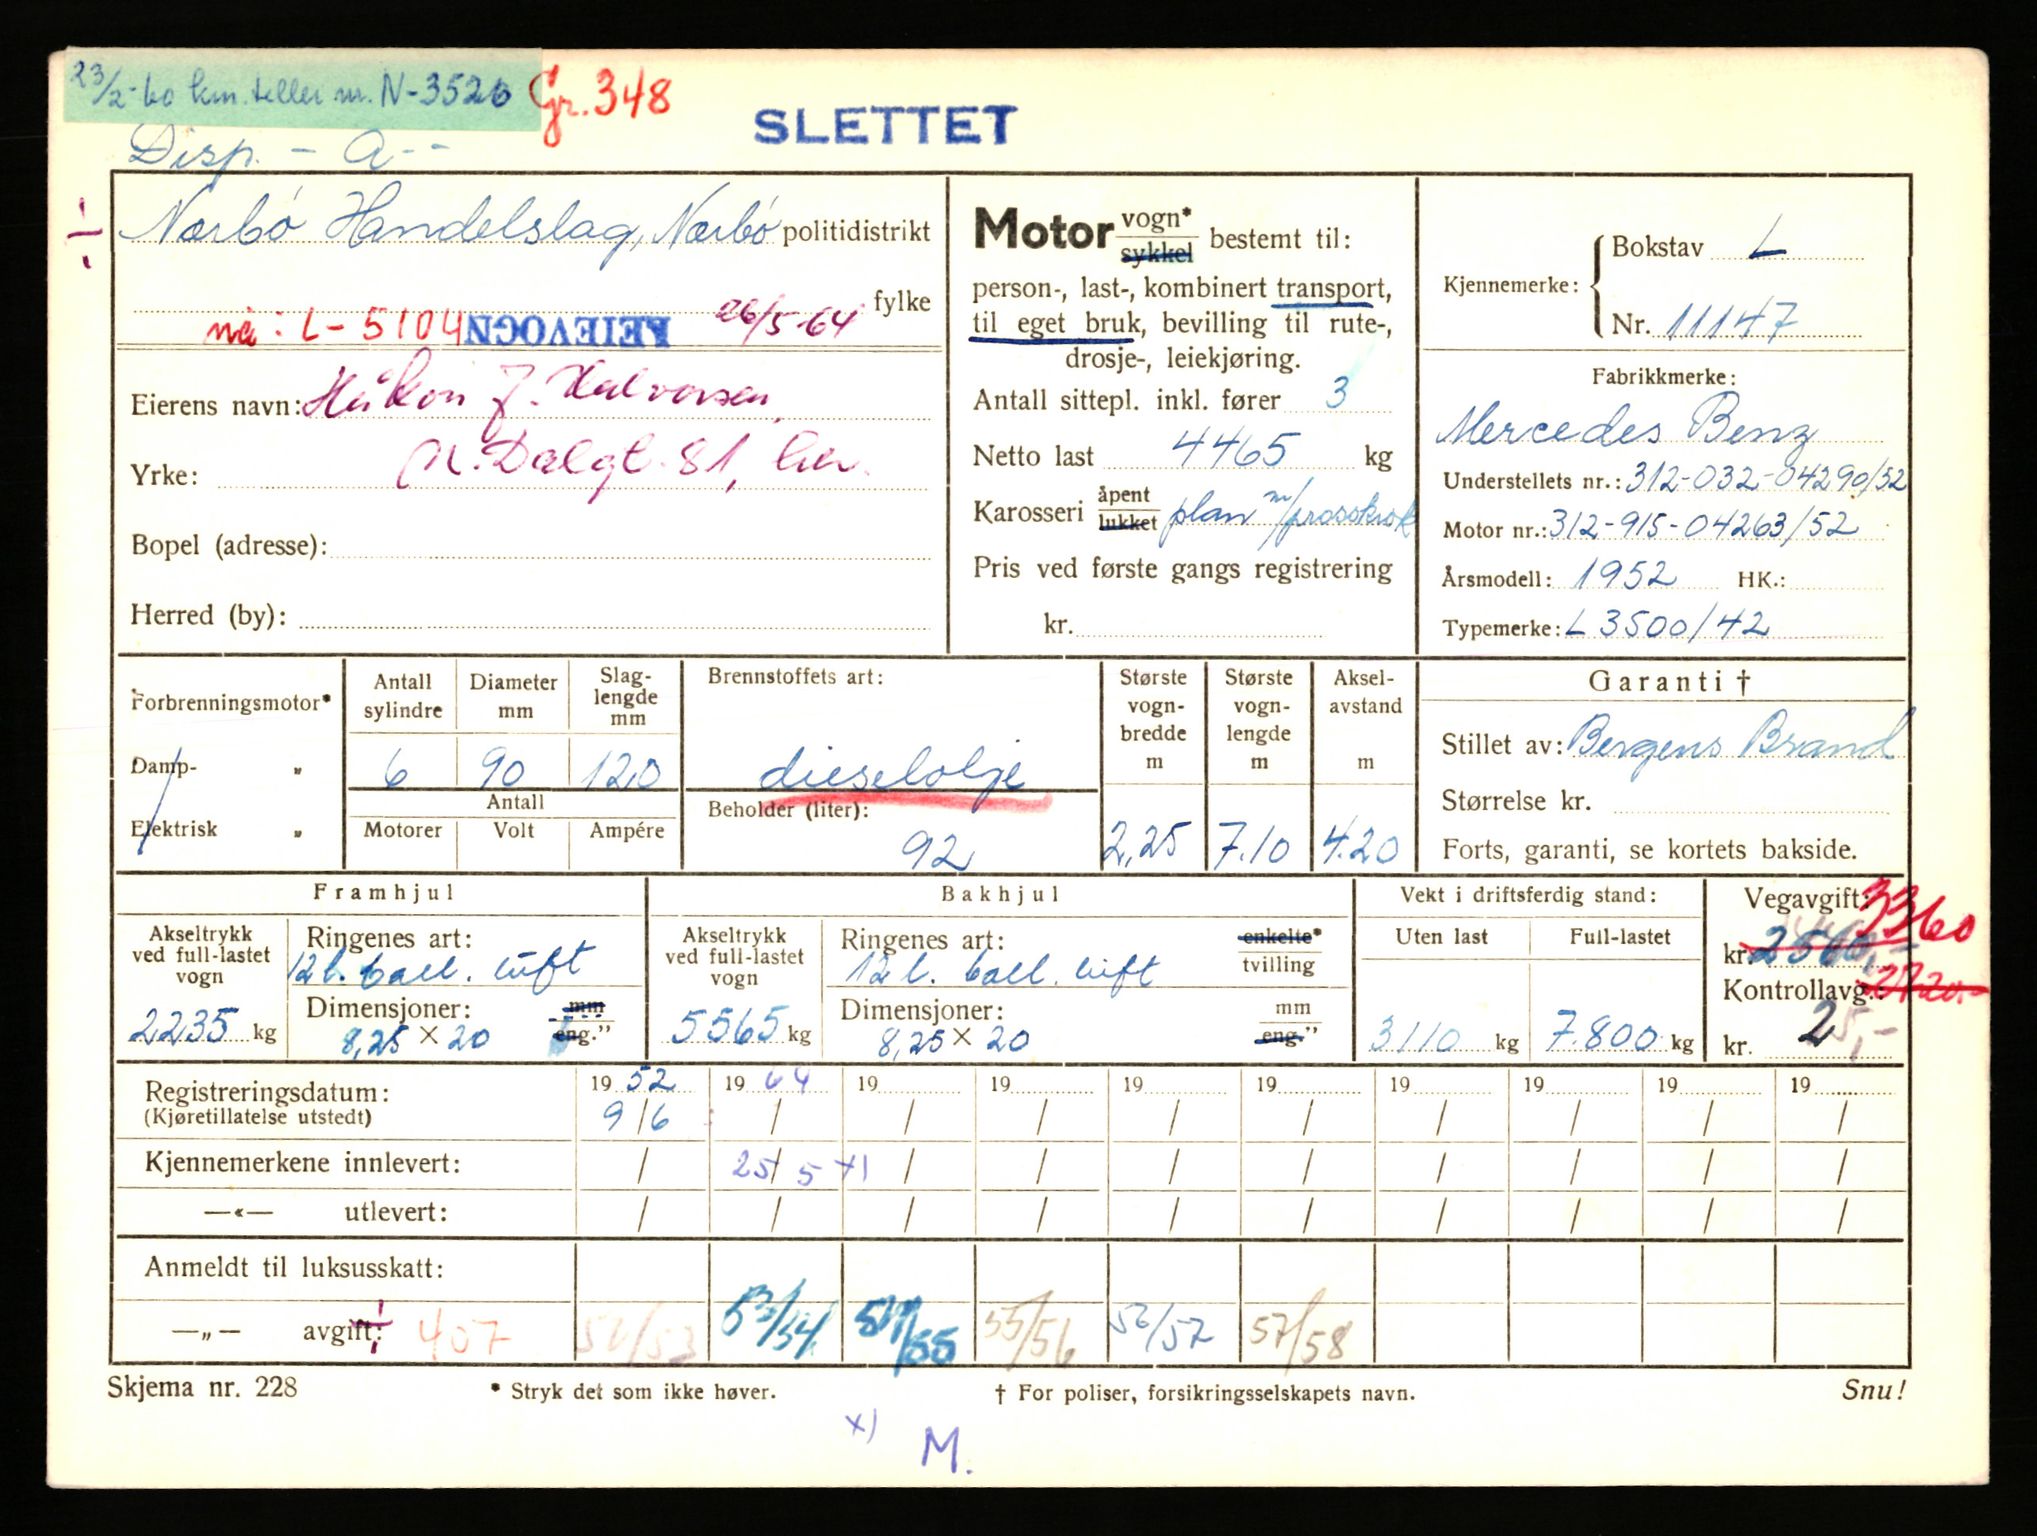 23/2-60 km.teller nr. N-3526 Gr.348
SLETTET
Disp. - a--
Nærbø Handelslag, Nærbø politidistrikt
fylke
nå: L-5104 LEIEVOGN 26/5-64
Eierens navn: Håkon J. Halvorsen,
Yrke: N. Dalgt. 81, her.
Bopel (adresse):
Herred (by):
Motor vogn* sykkel bestemt til:
person-, last-, kombinert transport,
til eget bruk, bevilling til rute-,
drosje-, leiekjøring.
Antall sittepl. inkl. fører 3
Netto last 4465 kg
Karosseri åpent lukket plan m/
Pris ved første gangs registrering
kr.
Kjennemerke: Bokstav L
Nr. 11147
Fabrikkmerke:
Mercedes Benz
Understellets nr.: 312-032-04290/52
Motor nr.: 312-915-04263/52
Årsmodell: 1952 HK.:
Typemerke: L 3500/42
Forbrenningsmotor*
Damp- „
Elektrisk „
Antall sylindre Diameter mm Slag-lengde mm
6 90 120
Antall
Motorer Volt Ampére
Brennstoffets art:
dieselolje
Beholder (liter):
92
Største vogn-bredde m
2,25
Største vogn-lengde m
7.10
Aksel-avstand m
4.20
Garanti †
Stillet av: Bergens Brand
Størrelse kr.
Forts, garanti, se kortets bakside.
Framhjul
Akseltrykk ved full-lastet vogn
2235 kg
Ringenes art:
12 l. ball. luft
Dimensjoner: mm eng.”
8,25 × 20
Bakhjul
Akseltrykk ved full-lastet vogn
5565 kg
Ringenes art: enkelte* tvilling
12 l. ball. luft
Dimensjoner: mm eng.”
8,25 × 20
Vekt i driftsferdig stand:
Uten last Full-lastet
3110 kg 7.800 kg
Vegavgift: 3360
kr. 2560,-
Kontrollavg.: 2720.-
kr. 25,-
Registreringsdatum: 19 52 19 64 19 19 19 19 19 19 19 19
(Kjøretillatelse utstedt) 9/6 / / / / / / / / /
Kjennemerkene innlevert: / 25/5 x) / / / / / / / /
—«— utlevert: / / / / / / / / / /
Anmeldt til luksusskatt:
—„— avgift: 407 52/53 53/54 54/55 55/56 56/57 57/58
Skjema nr. 228 * Stryk det som ikke høver. † For poliser, forsikringsselskapets navn. Snu!
x) M.